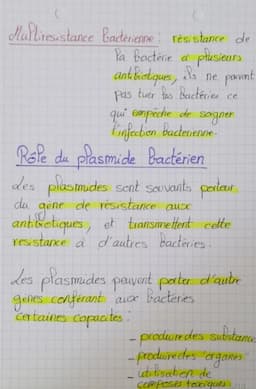 Multiresistance Bacterienne : résistance de
la bactérie a plusieurs
antibiotiques, ils ne peuvent
pas tuer les Bactéries ce
qui empêche de soigner
l'infection bacterienne.
Rôle du plasmide Bactérien
Les plasmides sont souvants porteur
du gène de résistance aux
antibiotiques, et transmettent cette
resistance à d'autres bactéries.
Les plasmides peuvent porter d'autre
gènes conférant aux Bactéries
certaines capacites :
- produire des substance
- produire des organes
- utilisation de
composés toxiques